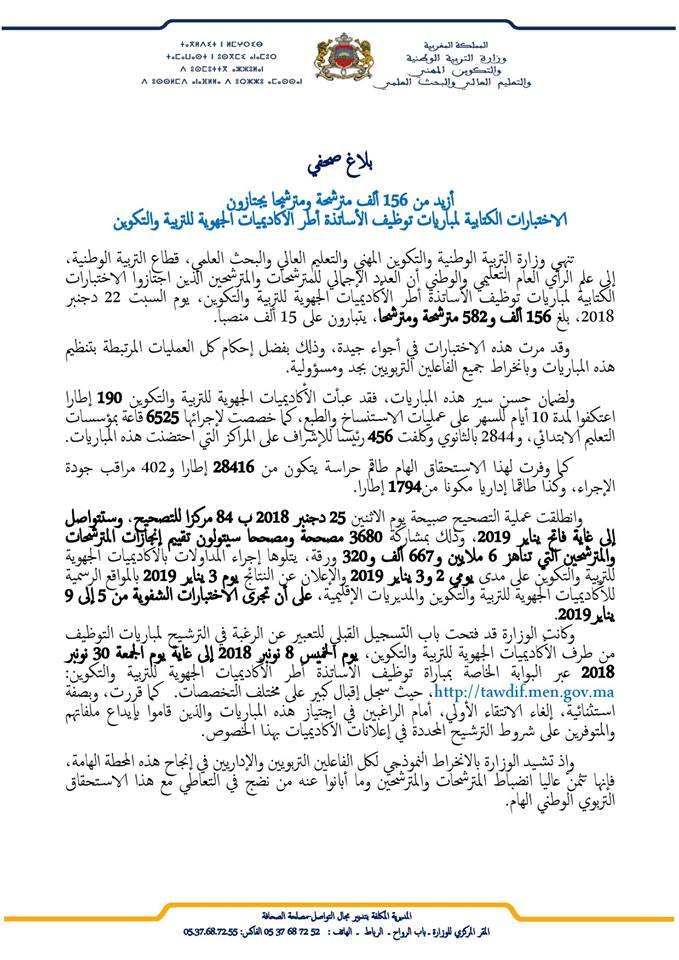 المملكة المغربية
وزارة التربية الوطنية
والتكوين المهني
والتعليم العالي والبحث العلمي
ⵜⴰⴳⵍⴷⵉⵜ ⵏ ⵍⵎⵖⵔⵉⴱ
بلاغ صحفي
أزيد من 156 ألف مترشحة ومترشحا يجتازون
الاختبارات الكتابية لمباريات توظيف الأساتذة أطر الأكاديميات الجهوية للتربية والتكوين
تنهي وزارة التربية الوطنية والتكوين المهني والتعليم العالي والبحث العلمي، قطاع التربية الوطنية،
إلى علم الرأي العام التعليمي والوطني أن العدد الإجمالي للمترشحات والمترشحين الذين اجتازوا الاختبارات
الكتابية لمباريات توظيف الأساتذة أطر الأكاديميات الجهوية للتربية والتكوين، يوم السبت 22 دجنبر
2018، بلغ 156 ألف و582 مترشحة ومترشحا، يتبارون على 15 ألف منصبا.
وقد مرت هذه الاختبارات في أجواء جيدة، وذلك بفضل إحكام كل العمليات المرتبطة بتنظيم
هذه المباريات وبانخراط جميع الفاعلين التربويين بجد ومسؤولية.
ولضمان حسن سير هذه المباريات، فقد عبأت الأكاديميات الجهوية للتربية والتكوين 190 إطارا
اعتكفوا لمدة 10 أيام للسهر على عمليات الاستنساخ والطبع، كما خصصت لإجرائها 6525 قاعة بمؤسسات
التعليم الابتدائي، و2844 بالثانوي وكلفت 456 رئيسا للإشراف على المراكز التي احتضنت هذه المباريات.
كما وفرت لهذا الاستحقاق الهام طاقم حراسة يتكون من 28416 إطارا و402 مراقب جودة
الإجراء، وكذا طاقما إداريا مكونا من1794 إطارا.
وانطلقت عملية التصحيح صبيحة يوم الاثنين 25 دجنبر 2018 ب 84 مركزا للتصحيح، وستتواصل
إلى غاية فاتح يناير 2019، وذلك بمشاركة 3680 مصححة ومصححا سيتولون تقييم إنجازات المترشحات
والمترشحين التي تناهز 6 ملايين و667 ألف و320 ورقة، يتلوها إجراء المداولات بالأكاديميات الجهوية
للتربية والتكوين على مدى يومي 2 و3 يناير 2019 والإعلان عن النتائج يوم 3 يناير 2019 بالمواقع الرسمية
للأكاديميات الجهوية للتربية والتكوين والمديريات الإقليمية، على أن تجرى الاختبارات الشفوية من 5 إلى 9
يناير2019.
وكانت الوزارة قد فتحت باب التسجيل القبلي للتعبير عن الرغبة في الترشيح لمباريات التوظيف
من طرف الأكاديميات الجهوية للتربية والتكوين، يوم الخميس 8 نونبر 2018 إلى غاية يوم الجمعة 30 نونبر
2018 عبر البوابة الخاصة بمباراة توظيف الأساتذة أطر الأكاديميات الجهوية للتربية والتكوين:
http://tawdif.men.gov.ma، حيث سجل إقبال كبير على مختلف التخصصات. كما قررت، وبصفة
استثنائية، إلغاء الانتقاء الأولي، أمام الراغبين في اجتياز هذه المباريات والذين قاموا بإيداع ملفاتهم
والمتوفرين على شروط الترشيح المحددة في إعلانات الأكاديميات بهذا الخصوص.
وإذ تشيد الوزارة بالانخراط النموذجي لكل الفاعلين التربويين والإداريين في إنجاح هذه المحطة الهامة،
فإنها تثمن عاليا انضباط المترشحات والمترشحين وما أبانوا عنه من نضج في التعاطي مع هذا الاستحقاق
التربوي الوطني الهام.
المديرية المكلفة بتدبير مجال التواصل-مصلحة الصحافة
المقر المركزي للوزارة ـ باب الرواح ـ الرباط ـ الهاتف : 05 37 68 72 52 الفاكس: 05.37.68.72.55